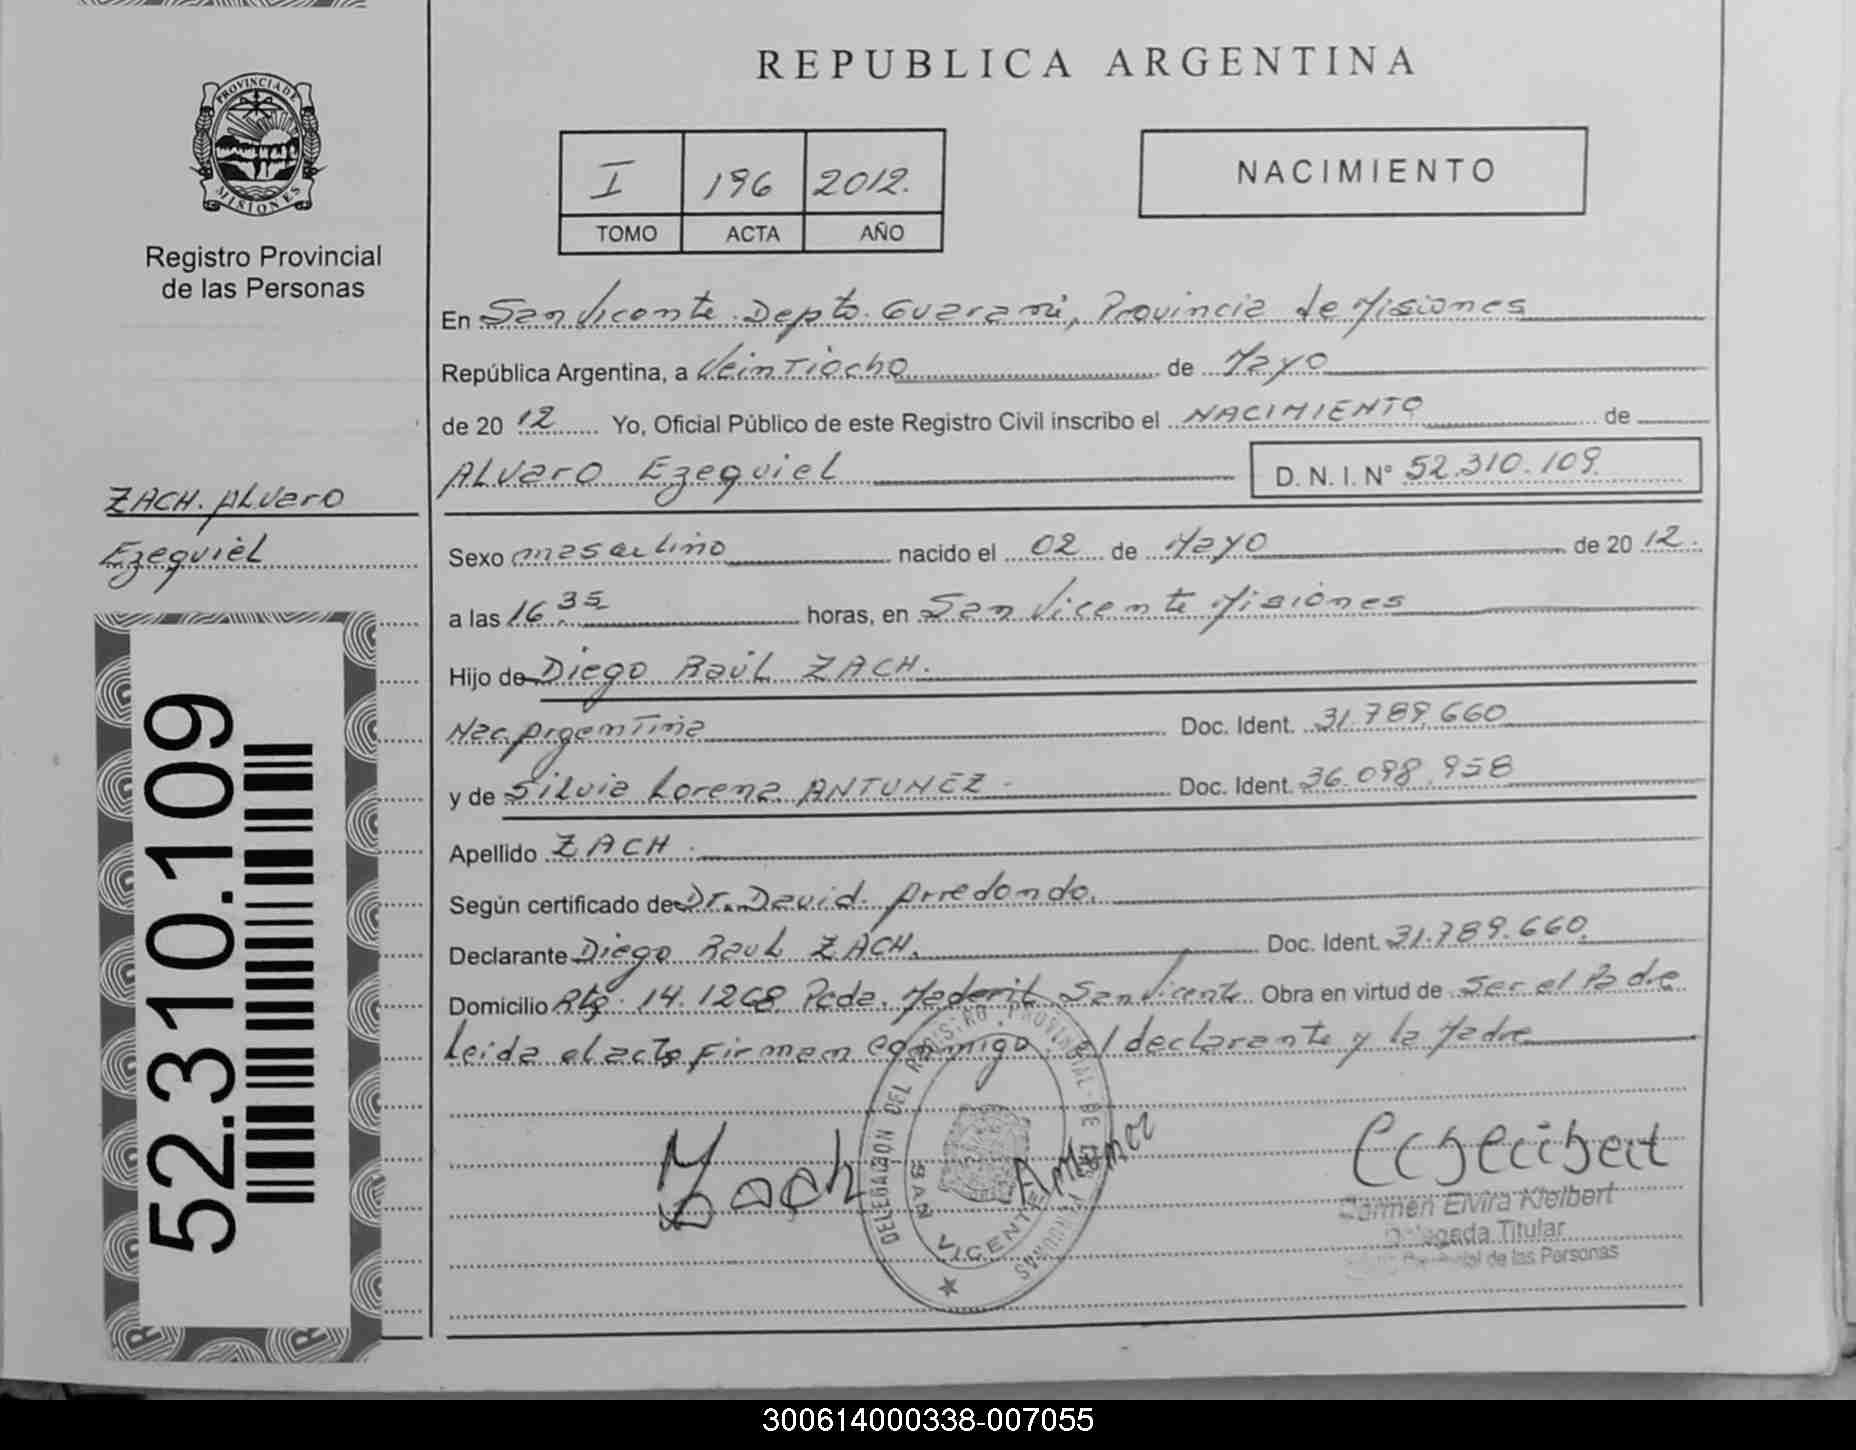 REPUBLICA ARGENTINA
PROVINCIA DE MISIONES
Registro Provincial
de las Personas
I 196 2012.
TOMO ACTA AÑO
NACIMIENTO
En San Vicente. Depto. Guaraní, Provincia de Misiones
República Argentina, a Veintiocho de Mayo
de 20 12 Yo, Oficial Público de este Registro Civil inscribo el NACIMIENTO de
ALVaro Ezequiel D. N. I. N° 52.310.109.
ZACH. ALVaro
Ezequiel
Sexo masculino nacido el 02 de Mayo de 20 12.
a las 16.35 horas, en San Vicente Misiones
Hijo de Diego Raúl ZACH.
Nac. Argentina Doc. Ident. 31.789.660
y de Silvia Lorena ANTUNEZ - Doc. Ident. 36.098.958
Apellido ZACH.
Según certificado de Dr. David. Arredondo.
Declarante Diego Raul ZACH. Doc. Ident. 31.789.660.
Domicilio Rta. 14. 1268. Pcda. San Vicente Obra en virtud de Ser el Padre
Leida el acta Firman conmigo el declarante y la Madre
Zach
DELEGACION DEL REGISTRO PROVINCIAL DE LAS PERSONAS
SAN VICENTE
Carmen Elvira Kleibert
Delegada Titular
Provincial de las Personas
52.310.109
300614000338-007055